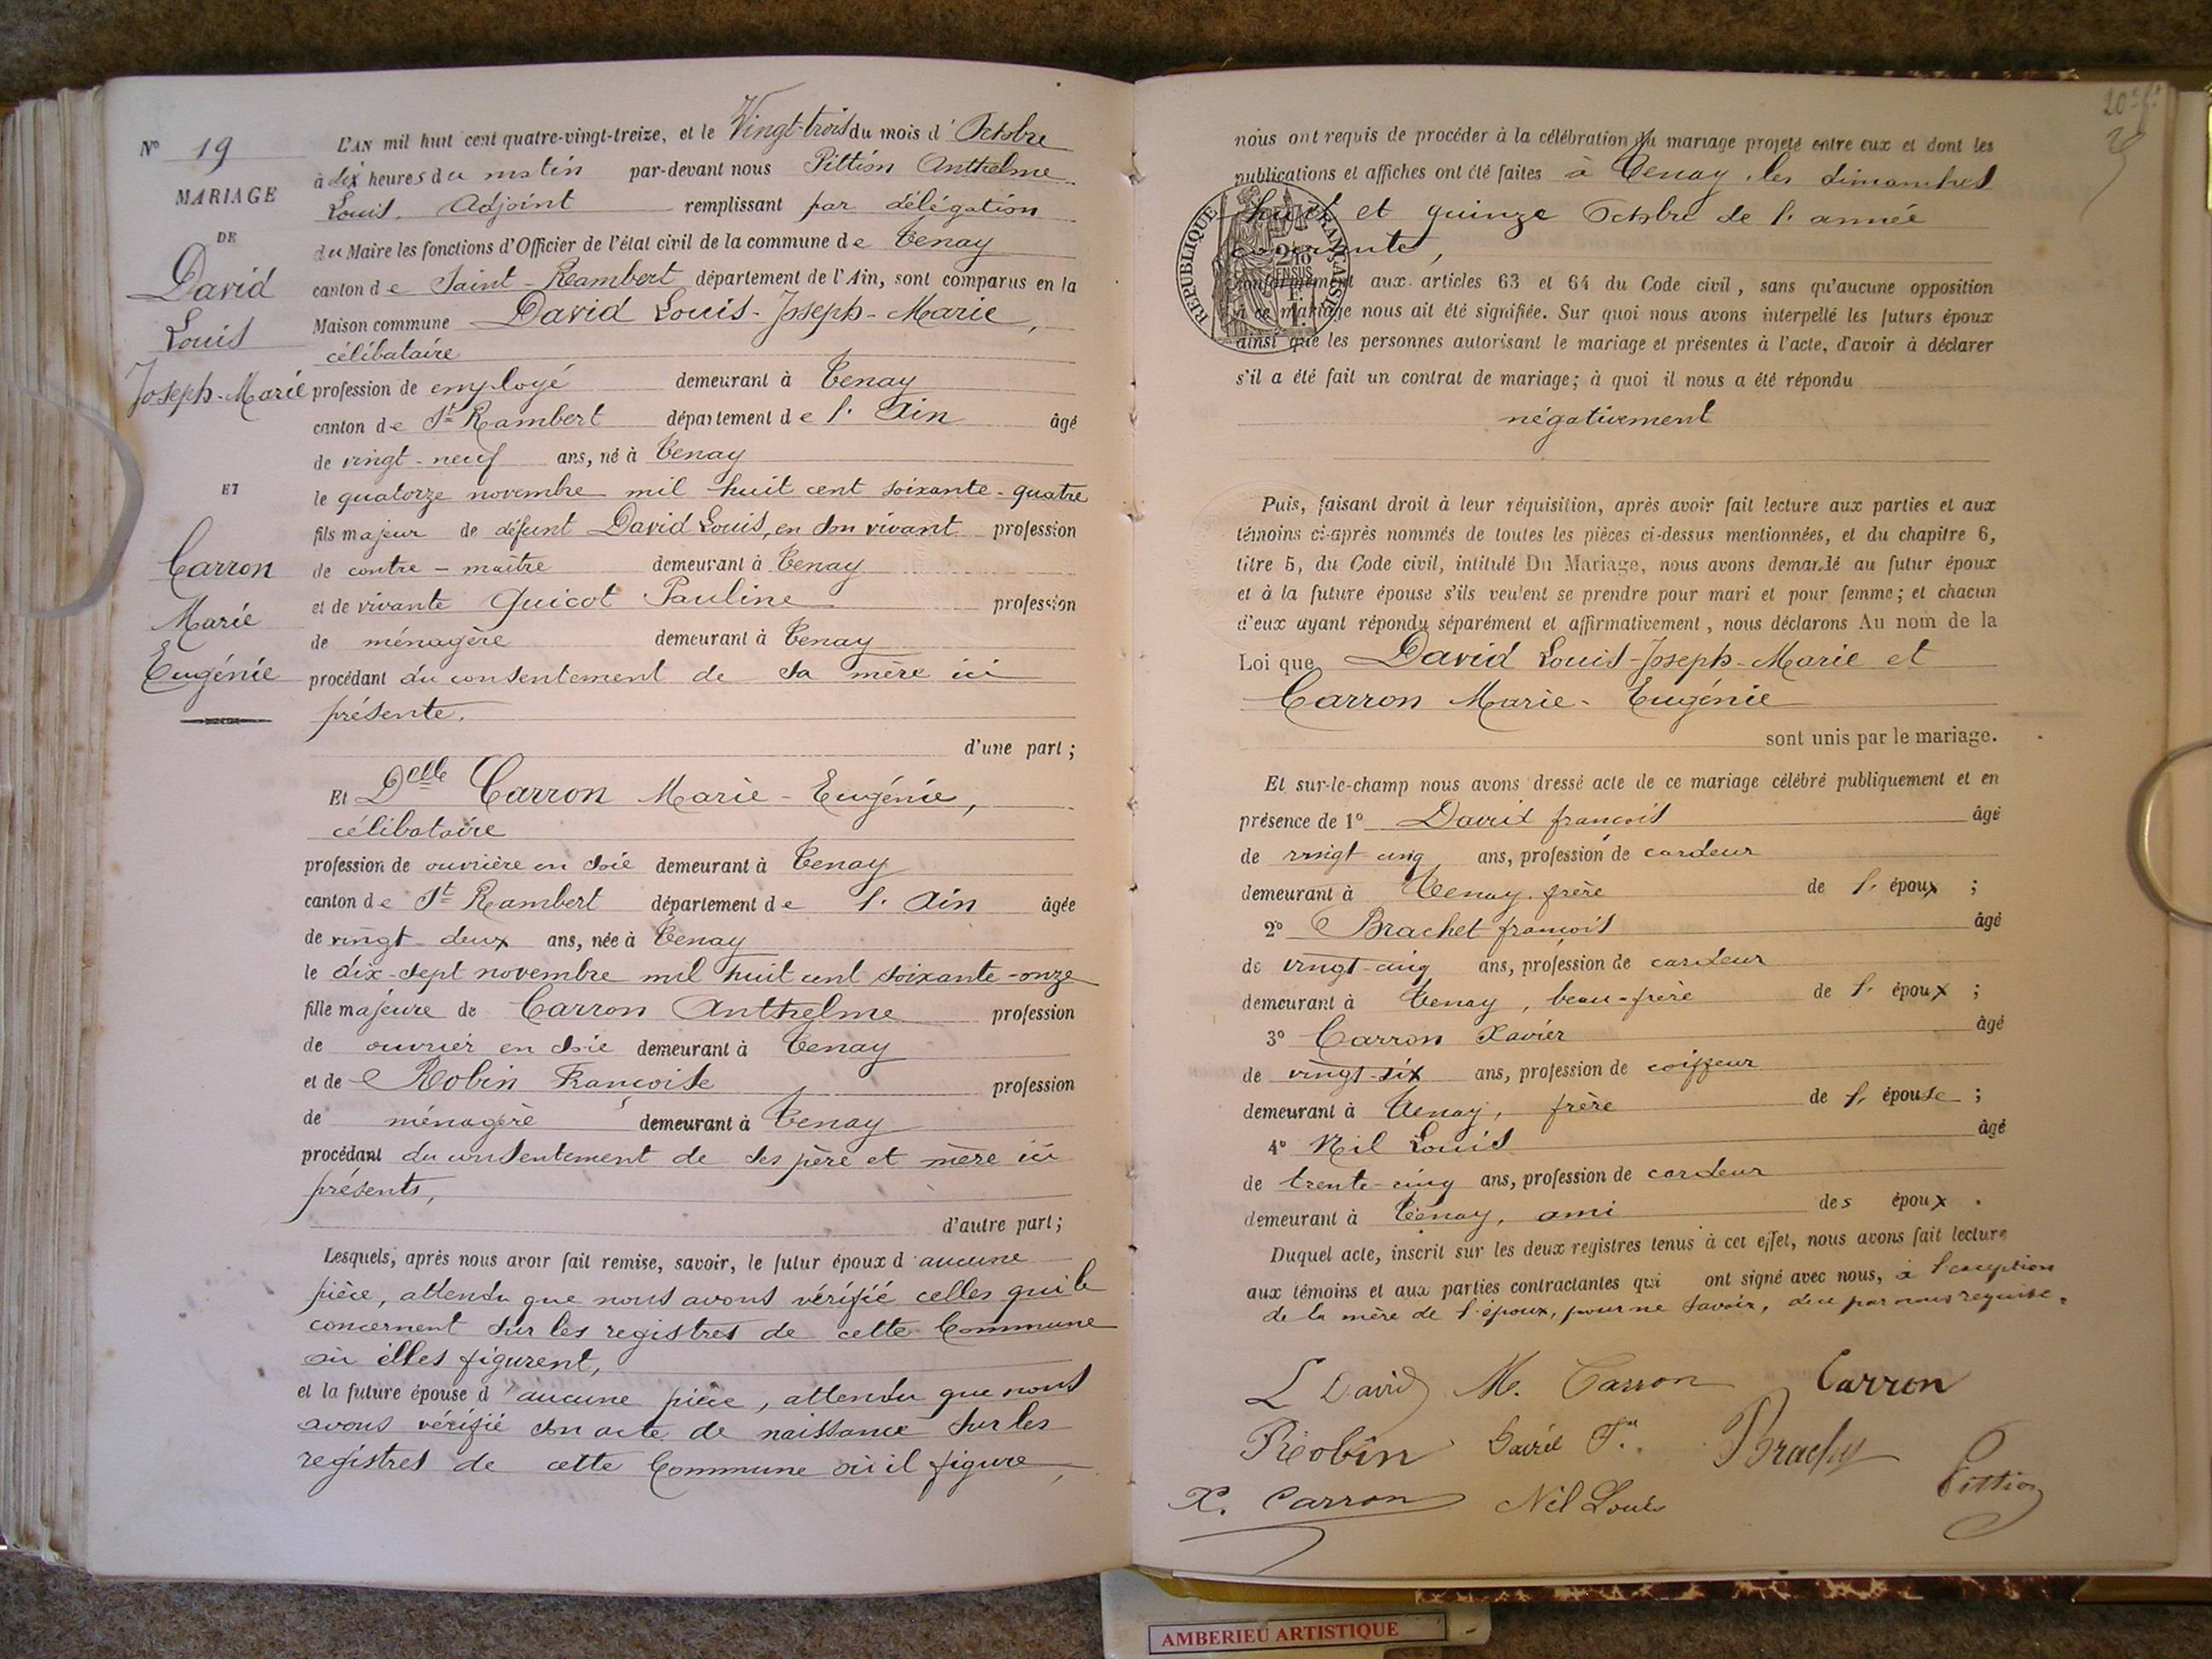 N° 19
MARIAGE
DE
David
Louis
Joseph-Marie
ET
Carron
Marie
Eugénie
L'AN mil huit cent quatre-vingt-treize, et le Vingt-trois du mois d'Octobre
à dix heures du matin par-devant nous Pittion Anthelme
Louis, Adjoint remplissant par délégation
du Maire les fonctions d'Officier de l'état civil de la commune de Tenay
canton de Saint-Rambert département de l'Ain, sont comparus en la
Maison commune David Louis-Joseph-Marie,
célibataire
profession de employé demeurant à Tenay
canton de St Rambert département de l'Ain âgé
de vingt-neuf ans, né à Tenay
le quatorze novembre mil huit cent soixante-quatre
fils majeur de défunt David Louis, en son vivant profession
de contre-maître demeurant à Tenay
et de vivante Guicot Pauline profession
de ménagère demeurant à Tenay
procédant du consentement de sa mère ici
présente.
d'une part;
Et Delle Carron Marie-Eugénie,
célibataire
profession de ouvrière en soie demeurant à Tenay
canton de St Rambert département de l'Ain âgée
de vingt-deux ans, née à Tenay
le dix-sept novembre mil huit cent soixante-onze
fille majeure de Carron Anthelme profession
de ouvrier en soie demeurant à Tenay
et de Robin Françoise profession
de ménagère demeurant à Tenay
procédant du consentement de ses père et mère ici
présents,
d'autre part;
Lesquels, après nous avoir fait remise, savoir, le futur époux d'aucune
pièce, attendu que nous avons vérifié celles qui le
concernent sur les registres de cette Commune
où elles figurent,
et la future épouse d'aucune pièce, attendu que nous
avons vérifié son acte de naissance sur les
registres de cette Commune où il figure,
nous ont requis de procéder à la célébration du mariage projeté entre eux et dont les
publications et affiches ont été faites à Tenay, les dimanches
huit et quinze Octobre de l'année
courante,
REPUBLIQUE FRANÇAISE
conformément aux articles 63 et 64 du Code civil, sans qu'aucune opposition
à ce mariage nous ait été signifiée. Sur quoi nous avons interpellé les futurs époux
ainsi que les personnes autorisant le mariage et présentes à l'acte, d'avoir à déclarer
s'il a été fait un contrat de mariage; à quoi il nous a été répondu
négativement
Puis, faisant droit à leur réquisition, après avoir fait lecture aux parties et aux
témoins ci-après nommés de toutes les pièces ci-dessus mentionnées, et du chapitre 6,
titre 5, du Code civil, intitulé Du Mariage, nous avons demandé au futur époux
et à la future épouse s'ils veulent se prendre pour mari et pour femme; et chacun
d'eux ayant répondu séparément et affirmativement, nous déclarons Au nom de la
Loi que David Louis-Joseph-Marie et
Carron Marie-Eugénie
sont unis par le mariage.
Et sur-le-champ nous avons dressé acte de ce mariage célébré publiquement et en
présence de 1° David françois âgé
de vingt-cinq ans, profession de cardeur
demeurant à Tenay, frère de l'époux ;
2° Brachet françois âgé
de vingt-cinq ans, profession de cardeur
demeurant à Tenay, beau-frère de l'époux ;
3° Carron Xavier âgé
de vingt-six ans, profession de coiffeur
demeurant à Tenay, frère de l'épouse ;
4° Nil Louis âgé
de trente-cinq ans, profession de cardeur
demeurant à Tenay, ami des époux.
Duquel acte, inscrit sur les deux registres tenus à cet effet, nous avons fait lecture
aux témoins et aux parties contractantes qui ont signé avec nous, à l'exception
de la mère de l'époux, pour ne savoir, de ce par nous requise.
L David M. Carron Carron
Robin David
X. Carron Nil Louis Pittion
AMBERIEU ARTISTIQUE